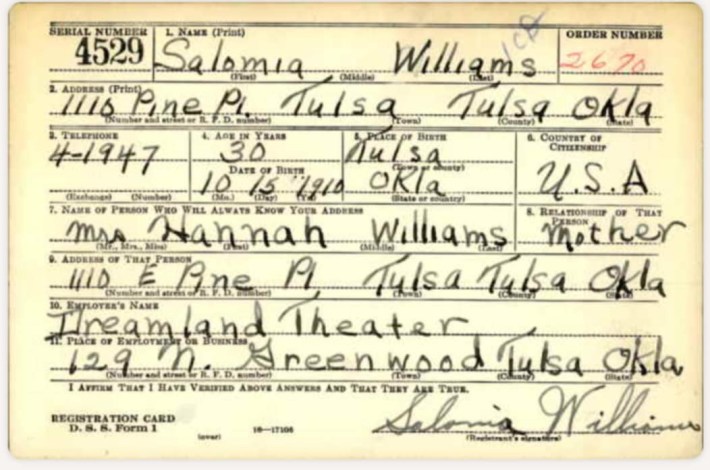 SERIAL NUMBER 1. NAME (Print) ORDER NUMBER
4529 Salomia Williams 2670
(First) (Middle) (Last)
2. ADDRESS (Print)
1110 Pine Pl. Tulsa Tulsa Okla
(Number and street or R. F. D. number) (Town) (County) (State)
3. TELEPHONE 4. AGE IN YEARS 5. PLACE OF BIRTH 6. COUNTRY OF CITIZENSHIP
4-1947 30 Tulsa
(Town or county)
DATE OF BIRTH
10 15 1910 Okla U.S.A
(Exchange) (Number) (Mo.) (Day) (Yr.) (State or country)
7. NAME OF PERSON WHO WILL ALWAYS KNOW YOUR ADDRESS 8. RELATIONSHIP OF THAT PERSON
Mrs Hannah Williams Mother
(Mr., Mrs., Miss) (First) (Middle) (Last)
9. ADDRESS OF THAT PERSON
1110 E Pine Pl Tulsa Tulsa Okla
(Number and street or R. F. D. number) (Town) (County) (State)
10. EMPLOYER'S NAME
Dreamland Theater
11. PLACE OF EMPLOYMENT OR BUSINESS
129 N. Greenwood Tulsa Okla
(Number and street or R. F. D. number) (Town) (County) (State)
I AFFIRM THAT I HAVE VERIFIED ABOVE ANSWERS AND THAT THEY ARE TRUE.
REGISTRATION CARD
D. S. S. Form 1 (over) 16—17105 Salomia Williams
(Registrant's signature)